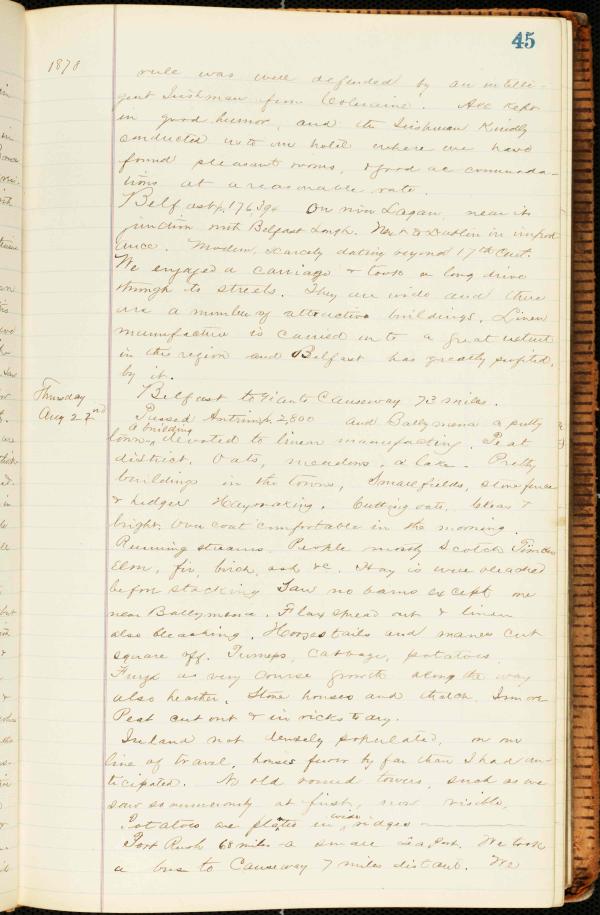 45
1878
rule was well defended by an intelli-
gent Irishman from Coleraine. All kept
in good humor, and the Irishman kindly
conducted us to an hotel where we have
found pleasant rooms, & good accommoda-
tions at a reasonable rate.
Belfast p. 176,394 On river Lagan, near its
junction with Belfast Lough. Next to Dublin in import
ance. Modern, scarcely dating beyond 17th Cent.
We engaged a carriage & took a long drive
through its streets. They are wide and there
are a number of attractive buildings. Linen
manufacture is carried on to a great extent
in this region and Belfast has greatly profited
by it.
Thursday
Aug 22nd
Belfast to Giants Causeway 73 miles.
Passed Antrim p. 2,800 and Ballymena a pretty
a building
town, devoted to linen manufacturing. Peat
district. Oats, meadows, a lake. Pretty
buildings in the towns, Small fields, stone fence
& hedges Haymaking. Cutting oats. Clear &
bright. Over coat comfortable in the morning.
Running streams. People mostly Scotch. Timber
Elm, fir, birch, ash &c. Hay is well bleached
before stacking Saw no barns except one
near Ballymena. Flax spread out & linen
also bleaching. Horses tails and manes cut
square off. Turnips, cabbage, potatoes.
Furze as very course growth along the way
also heather. Stone houses and thatch.
Peat cut out & in ricks to dry.
Ireland not densely populated, on our
line of travel, houses fewer by far than I had an-
ticipated. No old round towers, such as we
saw so numerously at first, now visible.
wide
Potatoes are planted in ridges
Port Rush 68 miles a small sea port. We took
a bus to Causeway 7 miles distant. We